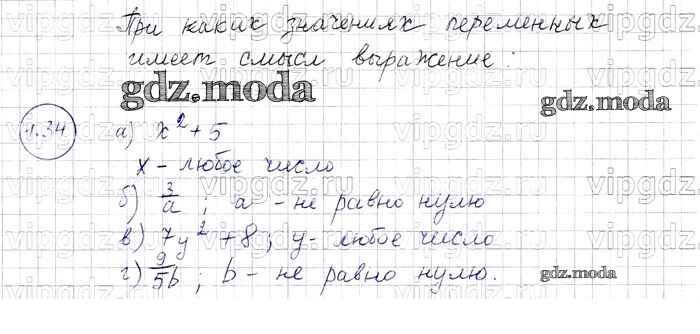 При каких значениях переменных
имеет смысл выражение:
gdz.moda
gdz.moda
1.34 а) x² + 5
x - любое число
б) 3/a ; a - не равно нулю
в) 7y² + 8; y - любое число
г) 9/5b ; b - не равно нулю.
gdz.moda
vipgdz.ru